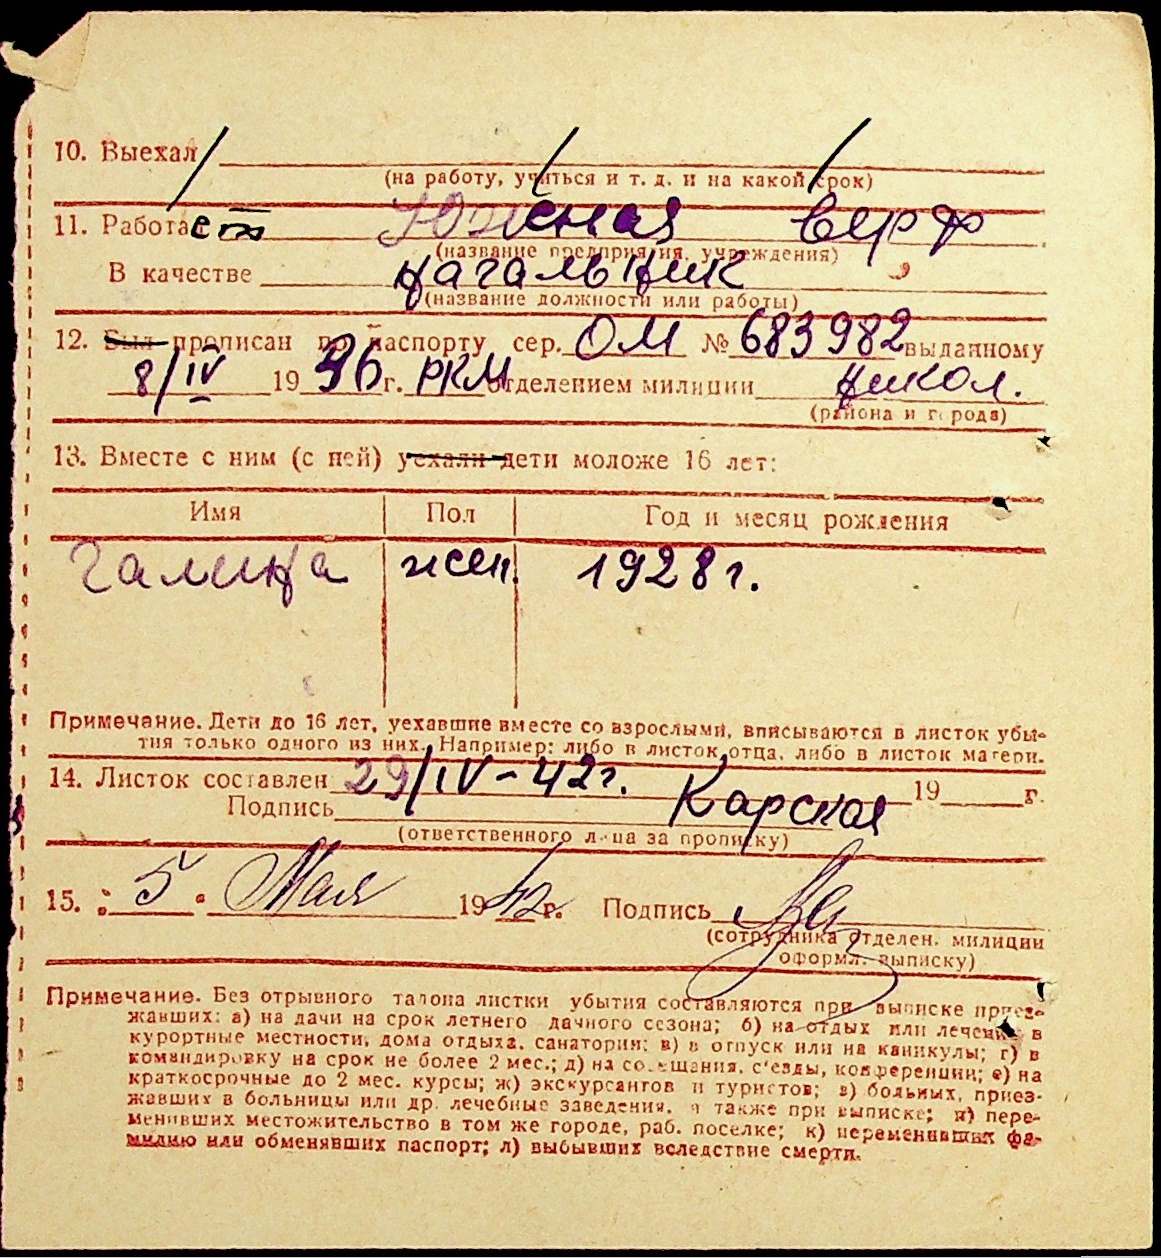 10. Выехал
(на работу, учиться и т. д. и на какой срок)
11. Работает Южная верф
(название предприятия, учреждения)
В качестве начальник
(название должности или работы)
12. Был прописан по паспорту сер. ОМ № 683982 выданному
8/IV 1936 г. РКМ отделением милиции Никол.
(района и города)
13. Вместе с ним (с ней) уехали дети моложе 16 лет:
Имя Пол Год и месяц рождения
Галина жен. 1928 г.
Примечание. Дети до 16 лет, уехавшие вместе со взрослыми, вписываются в листок убы-
тия только одного из них. Например: либо в листок отца, либо в листок матери.
14. Листок составлен 29/IV-42г. 19 г.
Подпись Карская
(ответственного лица за прописку)
15. "5" Мая 1942 г. Подпись
(сотрудника отделен. милиции
оформл. выписку)
Примечание. Без отрывного талона листки убытия составляются при выписке приез-
жавших: а) на дачи на срок летнего дачного сезона; б) на отдых или лечение в
курортные местности, дома отдыха, санатории; в) в отпуск или на каникулы; г) в
командировку на срок не более 2 мес.; д) на совещания, с'езды, конференции; е) на
краткосрочные до 2 мес. курсы; ж) экскурсантов и туристов; з) больных, приез-
жавших в больницы или др. лечебные заведения, а также при выписке; и) пере-
менивших местожительство в том же городе, раб. поселке; к) переменивших фа-
милию или обменявших паспорт; л) выбывших вследствие смерти.